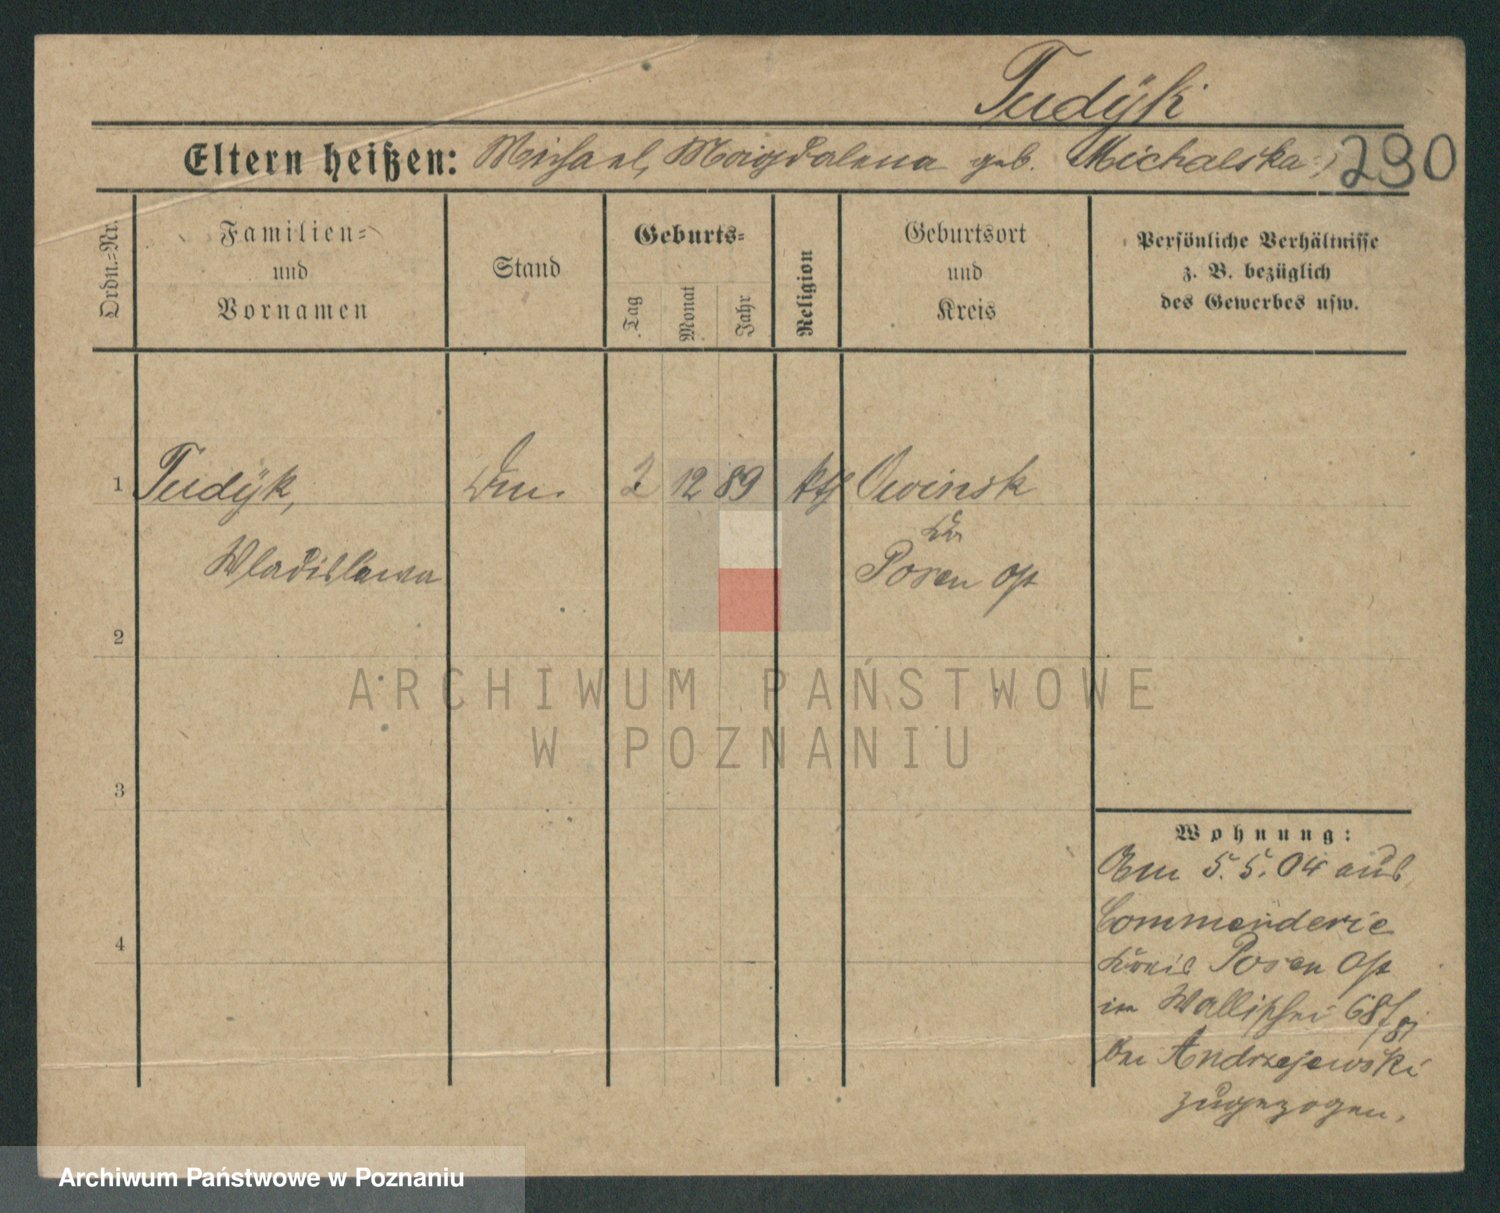 Tudÿk
Eltern heißen: Michael, Magdalena geb. Michalska
290
Ordn.=Nr.
Familien=
und
Vornamen
Stand
Geburts=
Tag
Monat
Jahr
Religion
Geburtsort
und
Kreis
Persönliche Verhältnisse
z. B. bezüglich
des Gewerbes usw.
1 Tudÿk, 2 12 89 kth Owinsk
Wladislawa
Posen Ost
2
3
4
ARCHIWUM PAŃSTWOWE
W POZNANIU
Wohnung:
Am 5.5.04 aus
Commenderie
Kreis Posen Ost
in Wallischei 68/
bei Andrzejewski
zugezogen.
Archiwum Państwowe w Poznaniu